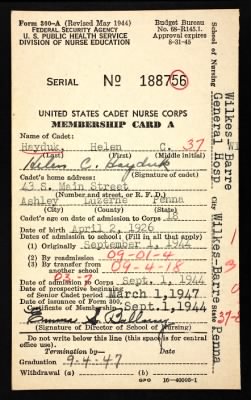 Form 300-A (Revised May 1944)
FEDERAL SECURITY AGENCY
U. S. PUBLIC HEALTH SERVICE
DIVISION OF NURSE EDUCATION
Budget Bureau
No. 68-R145.1.
Approval expires
8-31-45
SERIAL No 188756
UNITED STATES CADET NURSE CORPS
MEMBERSHIP CARD A
Name of Cadet:
Hayduk, Helen C. 37
(Last) (First) (Middle initial)
Helen C. Hayduk
(Signature of cadet)
Cadet's home address:
43 S. Main Street
(Number and street, or R. F. D.)
Ashley Luzerne Penna
(City) (County) (State)
Cadet's age on date of admission to Corps 18
Date of birth April 2, 1926
Dates of admission to school (Fill in all that apply)
(1) Originally September 1, 1944
(2) By readmission 09-01-4
(3) By transfer from another school 09-4-18
Date of admission to Corps Sept. 1, 1944
Date of prospective beginning
of Senior Cadet period March 1, 1947
Date of issuance of Form 300,
Certificate of Membership Sept. 1, 1944
(Signature of Director of School of Nursing)
Do not write below this line (this space for central
office use).
Termination by— Date
Graduation 9-4-47
Withdrawal
GPO 16-40095-1
School of Nursing
Wilkes Barre
General Hosp.
City Wilkes-Barre
State Penna.